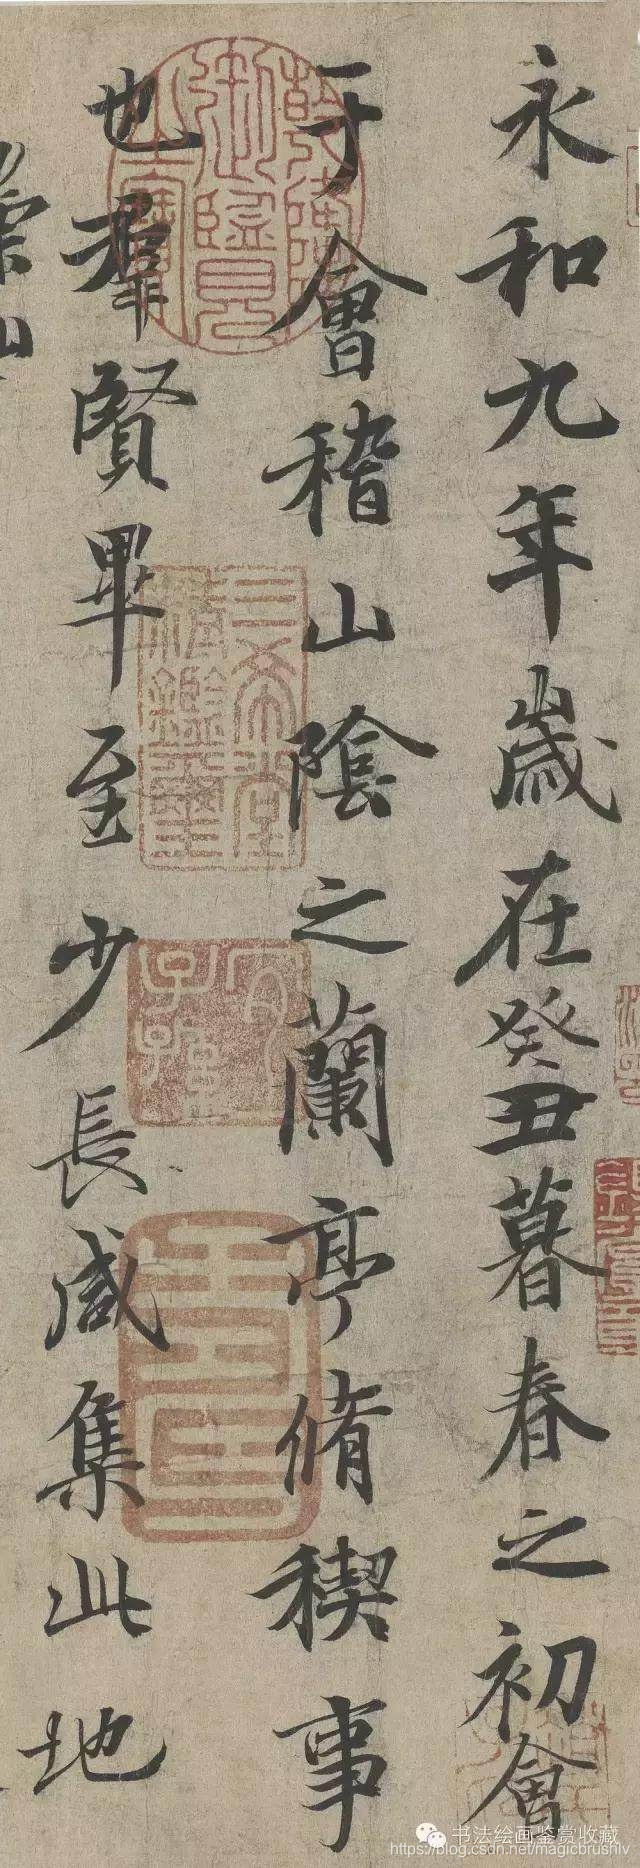 永和九年歲在癸丑暮春之初會
于會稽山陰之蘭亭脩稧事
也羣賢畢至少長咸集此地
乾隆御覽之寶
三希堂精鑑璽
宜子孫
书法绘画鉴赏收藏
https://blog.csdn.net/magicbrushlv